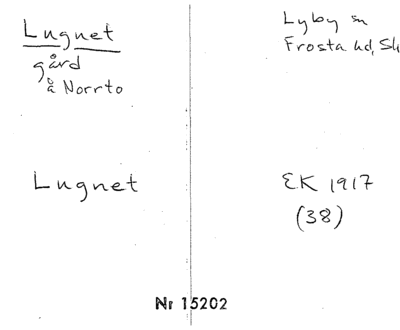 Lugnet
gård
å Norrto
Lyby sn
Frosta hd, Sk
Lugnet
EK 1917
(38)
Nr 15202